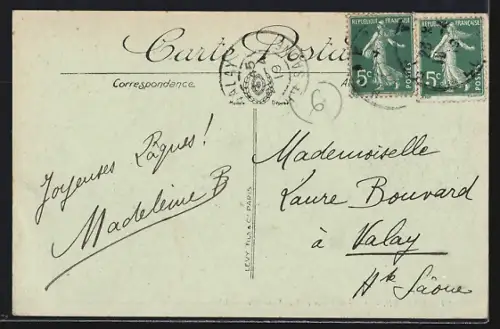 Carte Posta
Correspondence
RÉPUBLIQUE FRANÇAISE
5c
POSTES
RÉPUBLIQUE FRANÇAISE
5c
POSTES
VALAY
Hte SAÔNE
6
Joyeuses Pâques!
Madeleine B
LEVY FILS & Cie PARIS
Mademoiselle
Laure Bouvard
à Valay
Hte Saône